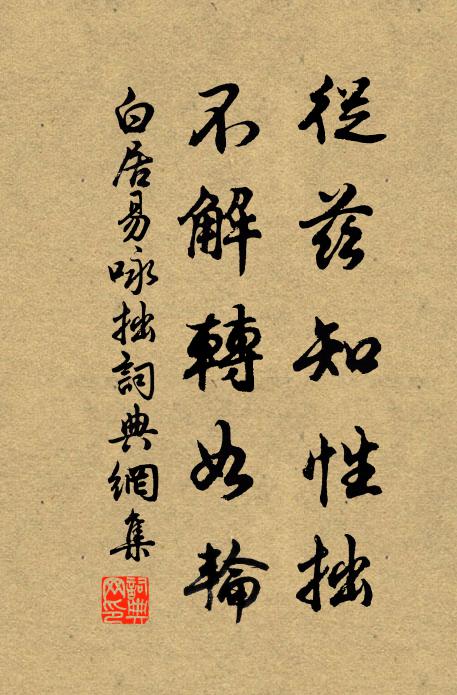 從茲知性拙
不解轉如輪
白居易咏拙詞典網集
詞典網印